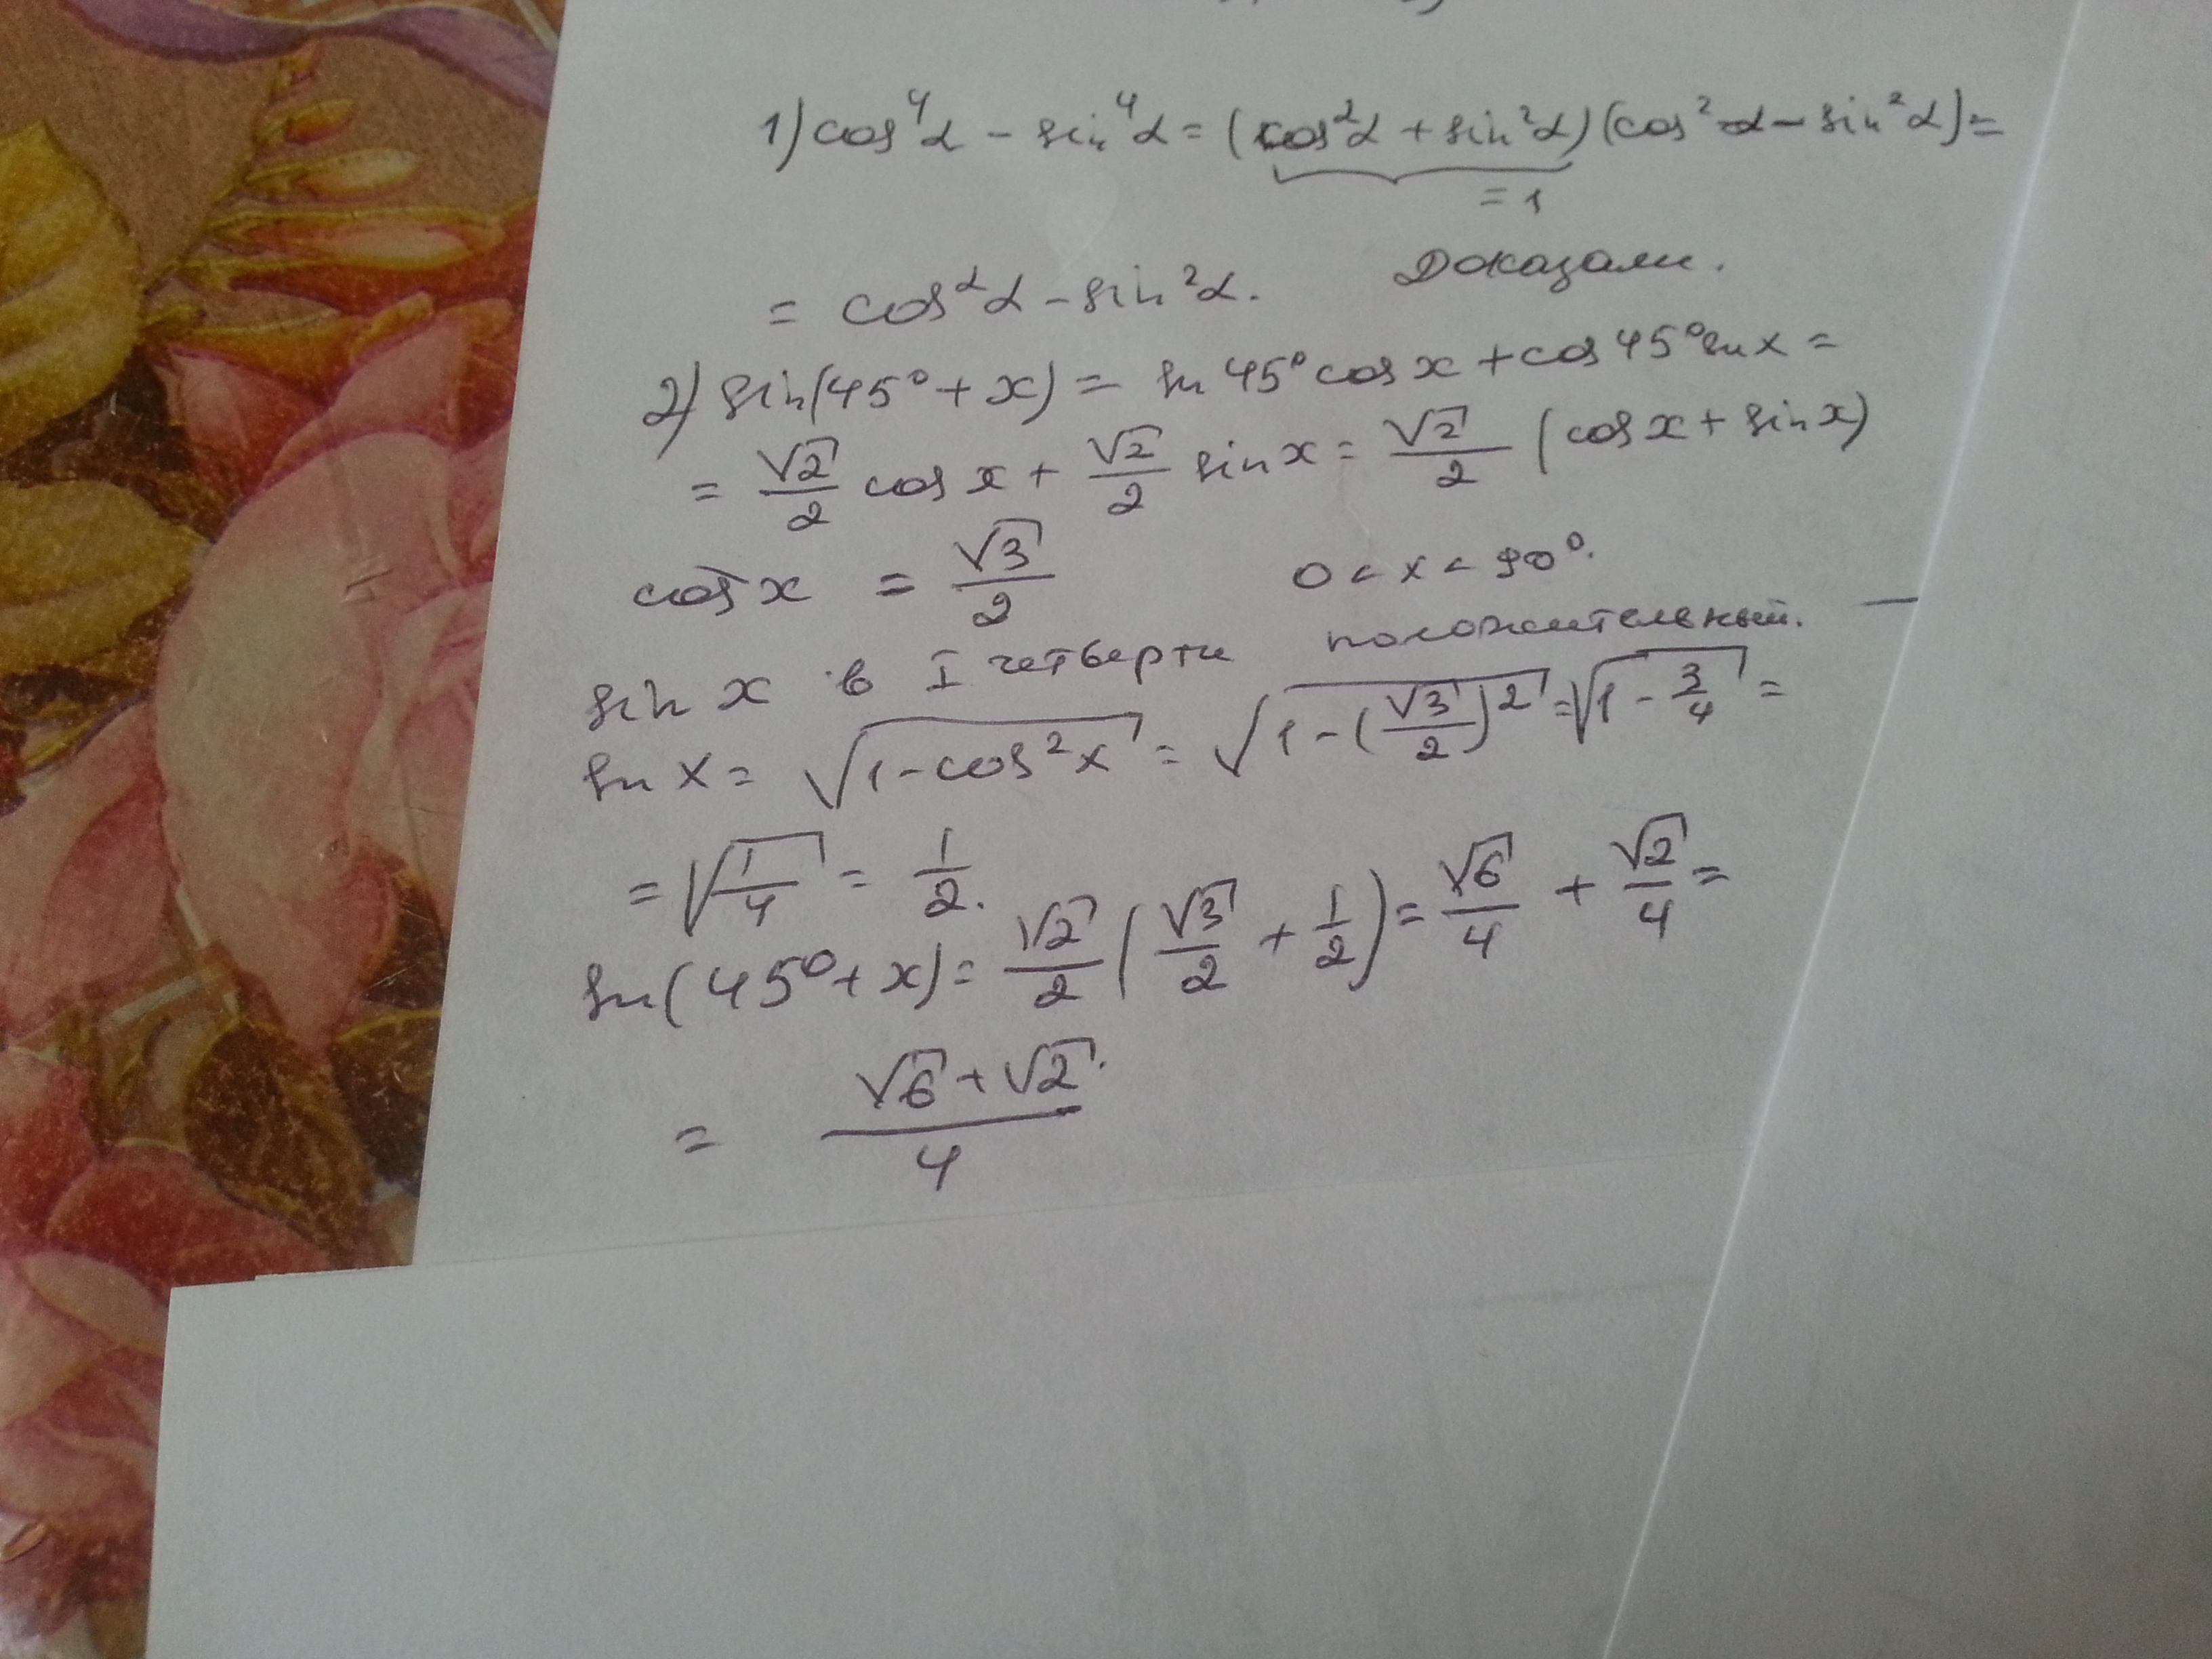 1) cos⁴α - sin⁴α = (cos²α + sin²α)(cos²α - sin²α) =
= 1
= cos²α - sin²α. Доказали.
2) sin(45° + x) = sin 45° cos x + cos 45° sin x =
= √2/2 cos x + √2/2 sin x = √2/2 (cos x + sin x)
cos x = √3/2 0 < x < 90°.
sin x в I четверти положительный. —
sin x = √(1 - cos²x) = √(1 - (√3/2)²) = √(1 - 3/4) =
= √(1/4) = 1/2.
sin(45° + x) = √2/2 (√3/2 + 1/2) = √6/4 + √2/4 =
= (√6 + √2)/4